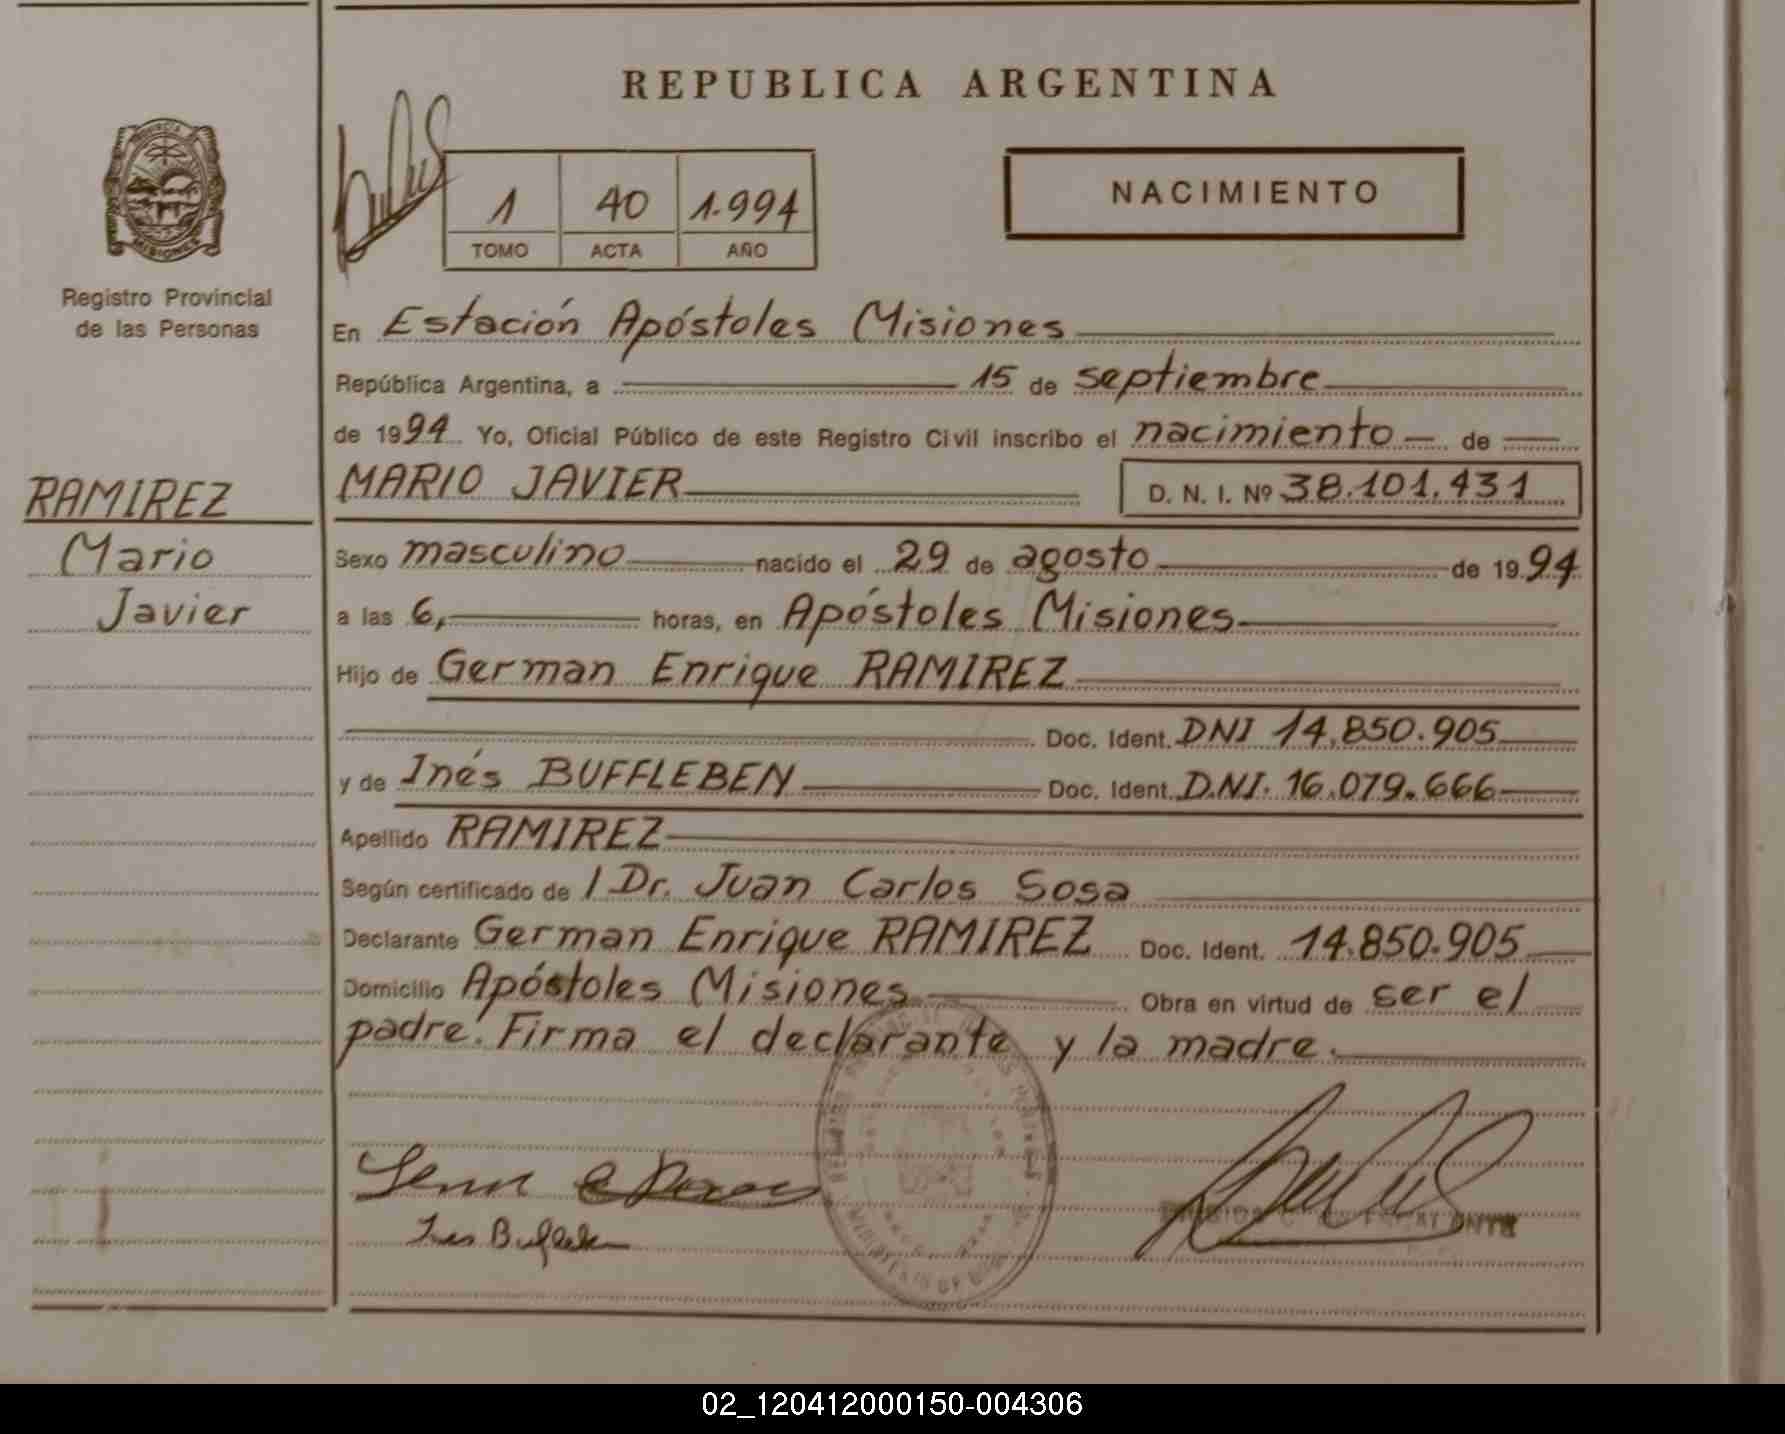 REPUBLICA ARGENTINA
PROVINCIA DE
MISIONES
Registro Provincial
de las Personas
1 40 1.994
TOMO ACTA AÑO
NACIMIENTO
En Estación Apóstoles Misiones
República Argentina, a 15 de septiembre
de 1994 Yo, Oficial Público de este Registro Civil inscribo el nacimiento de
RAMIREZ
Mario
Javier
MARIO JAVIER D. N. I. Nº 38.101.431
Sexo masculino nacido el 29 de agosto de 1994
a las 6, horas, en Apóstoles Misiones
Hijo de German Enrique RAMIREZ
Doc. Ident. DNI 14.850.905
y de Inés BUFFLEBEN Doc. Ident. D.NI. 16.079.666
Apellido RAMIREZ
Según certificado de / Dr. Juan Carlos Sosa
Declarante German Enrique RAMIREZ Doc. Ident. 14.850.905
Domicilio Apóstoles Misiones Obra en virtud de ser el
padre. Firma el declarante y la madre.
Ines Buffleben
02_120412000150-004306